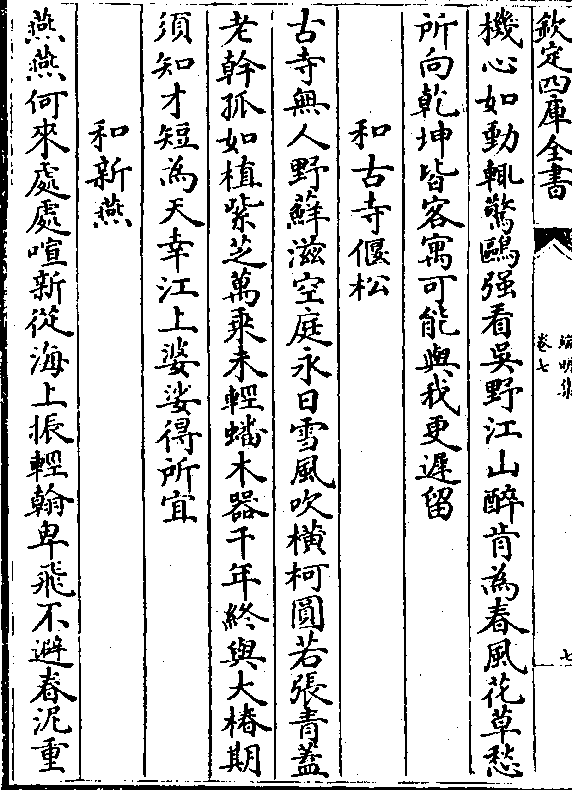 欽定四庫全書
卷七
七
機心如動輒驚鷗强看吳野江山醉肯為春風花草愁
所向乾坤皆客寓可能與我更遲留
和古寺偃松
古寺無人野蘚滋空庭永日雪風吹橫柯圓若張青蓋
老幹孤如植紫芝萬乘未輕蟠木器千年終與大椿期
須知才短為天幸江上婆娑得所宜
和新燕
燕燕何來處處喧新從海上振輕翰卑飛不避春泥重